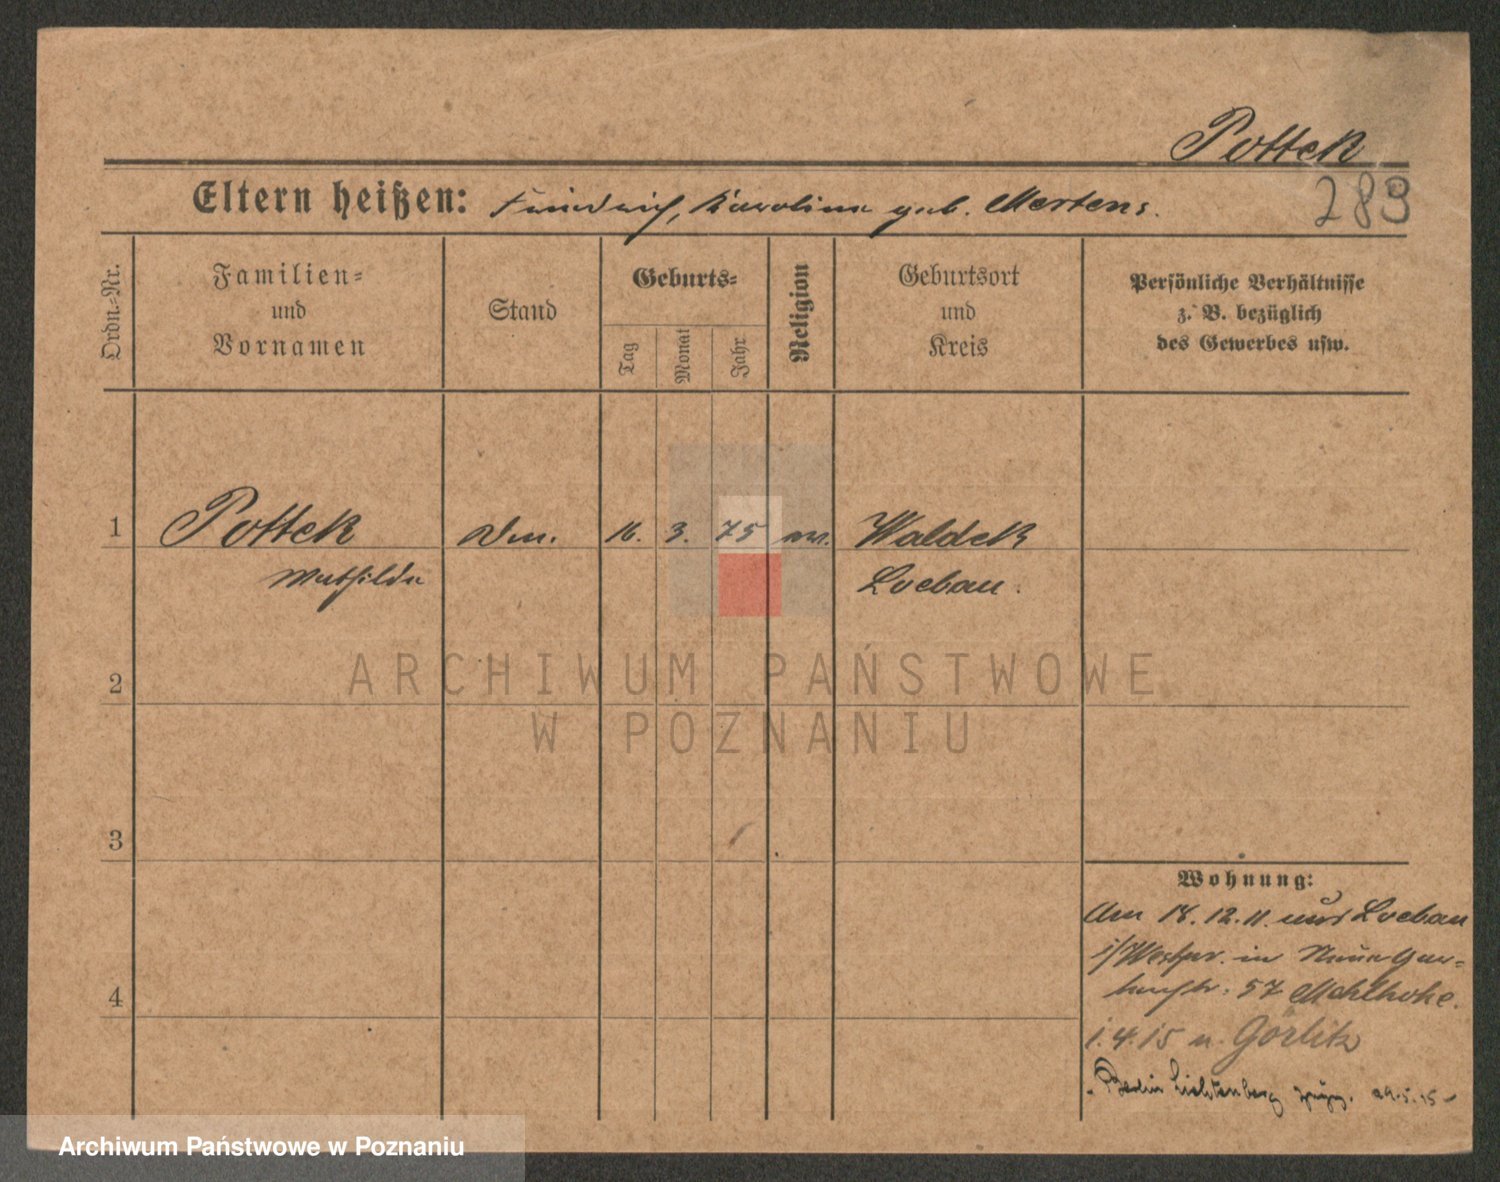 Pottek
283
Eltern heißen: Friedrich, Karoline geb. Mertens.
Ordn.-Nr.
Familien-
und
Vornamen
Stand
Geburts-
Tag
Monat
Jahr
Religion
Geburtsort
und
Kreis
Persönliche Verhältnisse
z. B. bezüglich
des Gewerbes usw.
1 Pottek 16. 3. 75 ev. Waldek
Mathilde Loebau.
2
ARCHIWUM PAŃSTWOWE
W POZNANIU
3
4
Wohnung:
Am 18. 12. 11. aus Loebau
i/Westpr. in Neue Gar-
57
1. 4. 15 n. Görlitz
Berlin Lichtenberg 29.5.15
Archiwum Państwowe w Poznaniu